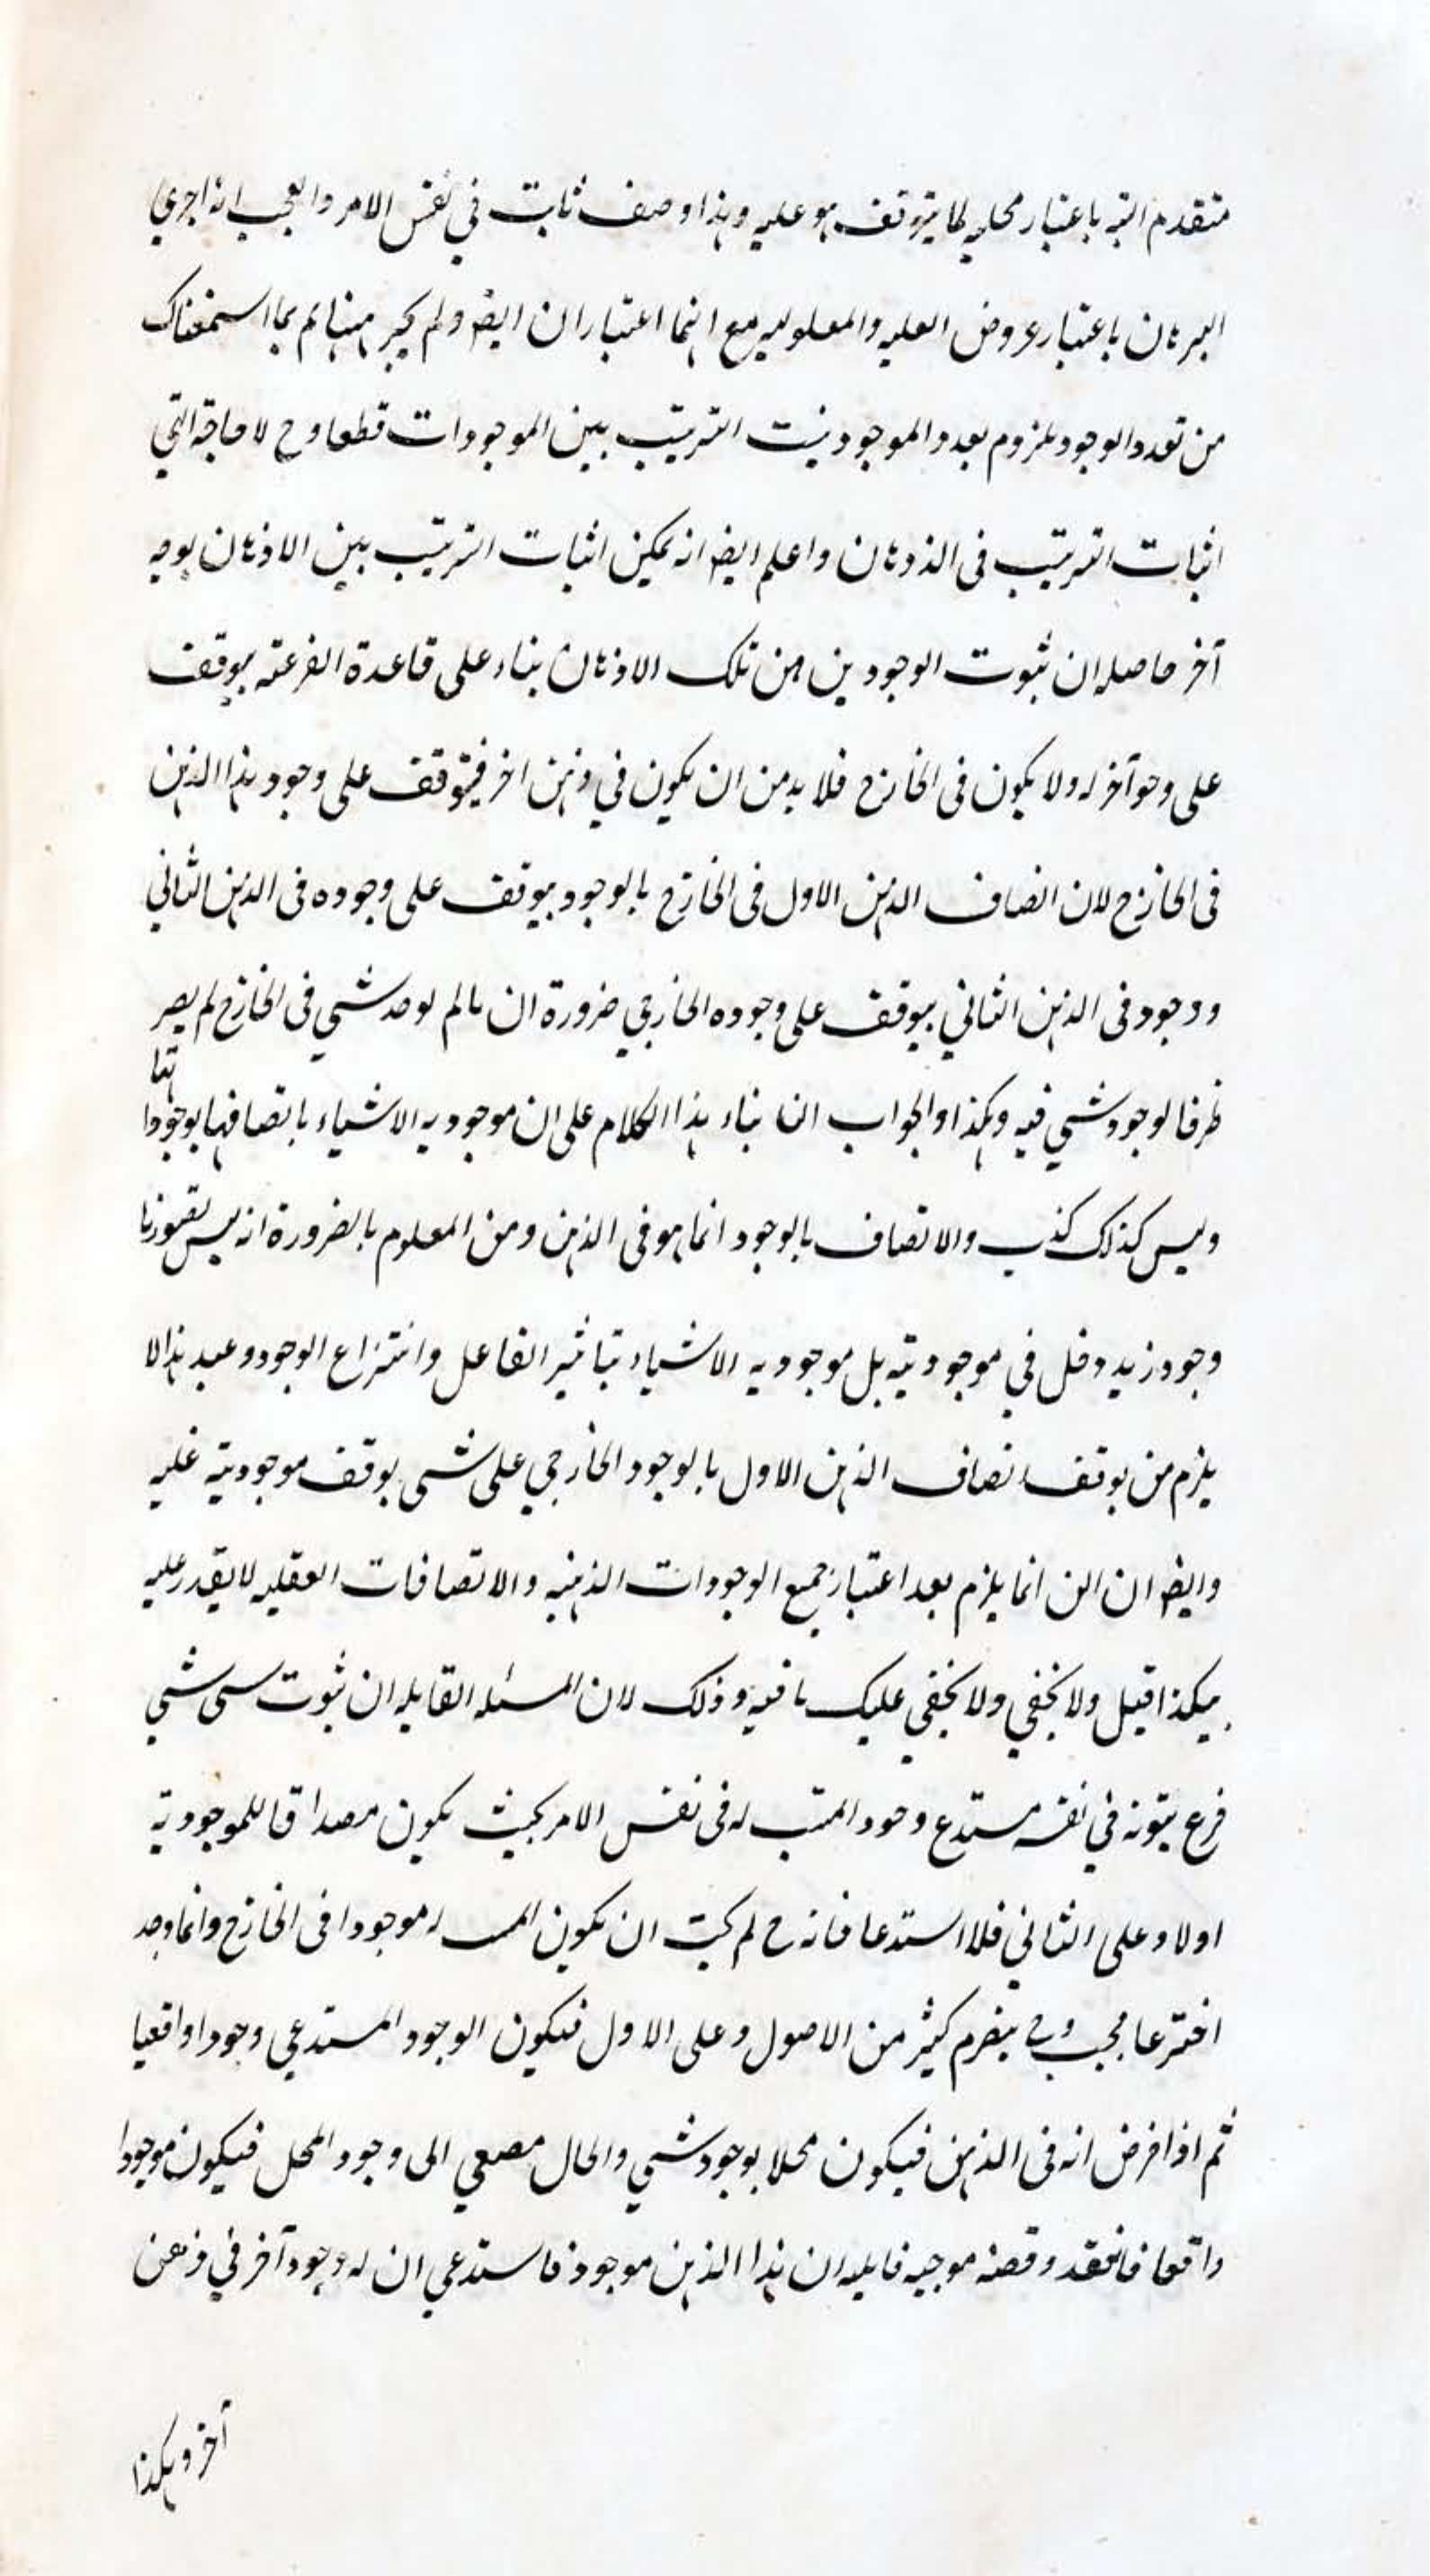 متقدم البته باعتبار محليه لما يتوقف هو عليه وهذا وصف ثابت في نفس الامر والعجب انه اجري
البرهان باعتبار عروض العليه والمعلوليه مع انهما اعتباران ايضا ولم يجر ههنا ثم بما اسمعناك
من تعدد الوجود يلزوم بعدد الموجود ثبت الترتيب بين الموجودات قطعا وح لا حاجة الي
اثبات الترتيب فى الذوهان واعلم ايضا انه يمكن اثبات الترتيب بين الاذهان بوجه
آخر حاصله ان ثبوت الوجود ين من تلك الاذهان بناء على قاعدة الفرعيه يوقف
على وجو آخر له ولا يكون فى الخارج فلا بد من ان يكون في ذهن اخر فيتوقف على وجود هذا الذهن
فى الخارج لان اتصاف الذهن الاول فى الخارج بالوجود يتوقف على وجوده فى الذهن الثاني
ووجود فى الذهن الثاني يتوقف على وجوده الخارجي ضرورة ان ما لم يوجد شي في الخارج لم يصر
ظرفا لوجود شي فيه وهكذا والجواب ان بناء هذا الكلام على ان موجوديه الاشياء باتصافها بوجوداتها
وليس كذلك والاتصاف بالوجود انما هو فى الذهن ومن المعلوم بالضرورة انه ليس لتصورنا
وجود زيد دخل في موجوديته بل موجوديه الاشياء بتاثير الفاعل وانتزاع الوجود وعند هذا لا
يلزم من توقف اتصاف الذهن الاول بالوجود الخارجي على شى توقف موجوديته عليه
وايضا ان انما يلزم بعد اعتبار جميع الوجودات الذهنيه والاتصافات العقليه لا يقدر عليه
هيكذا قيل ولا يخفي ولا يخفي عليك ما فيه وذلك لان المسئله القايله ان ثبوت شى شي
فرع ثبوته في نفسه مستدع وجود المثبت له فى نفس الامر بحيث يكون مصداقا للموجودية
اولا وعلى الثاني فلا استدعا فانه ح لم يجب ان يكون له موجودا فى الخارج وانما وجد
اخترعا وح ينخرم كثير من الاصول وعلى الاول فيكون الوجود المستدعي وجودا واقعيا
ثم اذا فرض انه فى الذهن فيكون محلا بوجود شي والحال الى وجود المحل فيكون موجودا
واقعا فانعقد وقضيه موجبه قايله ان هذا الذهن موجود فاستدعي ان له وجود آخر في ذهن
آخر وهكذا